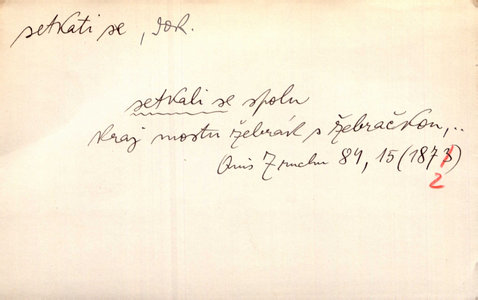 setkati se, dok.
setkali se spolu
kraj mostu žebrák s žebračkou,..
Quis Z ruchu 84, 15 (1873)
2